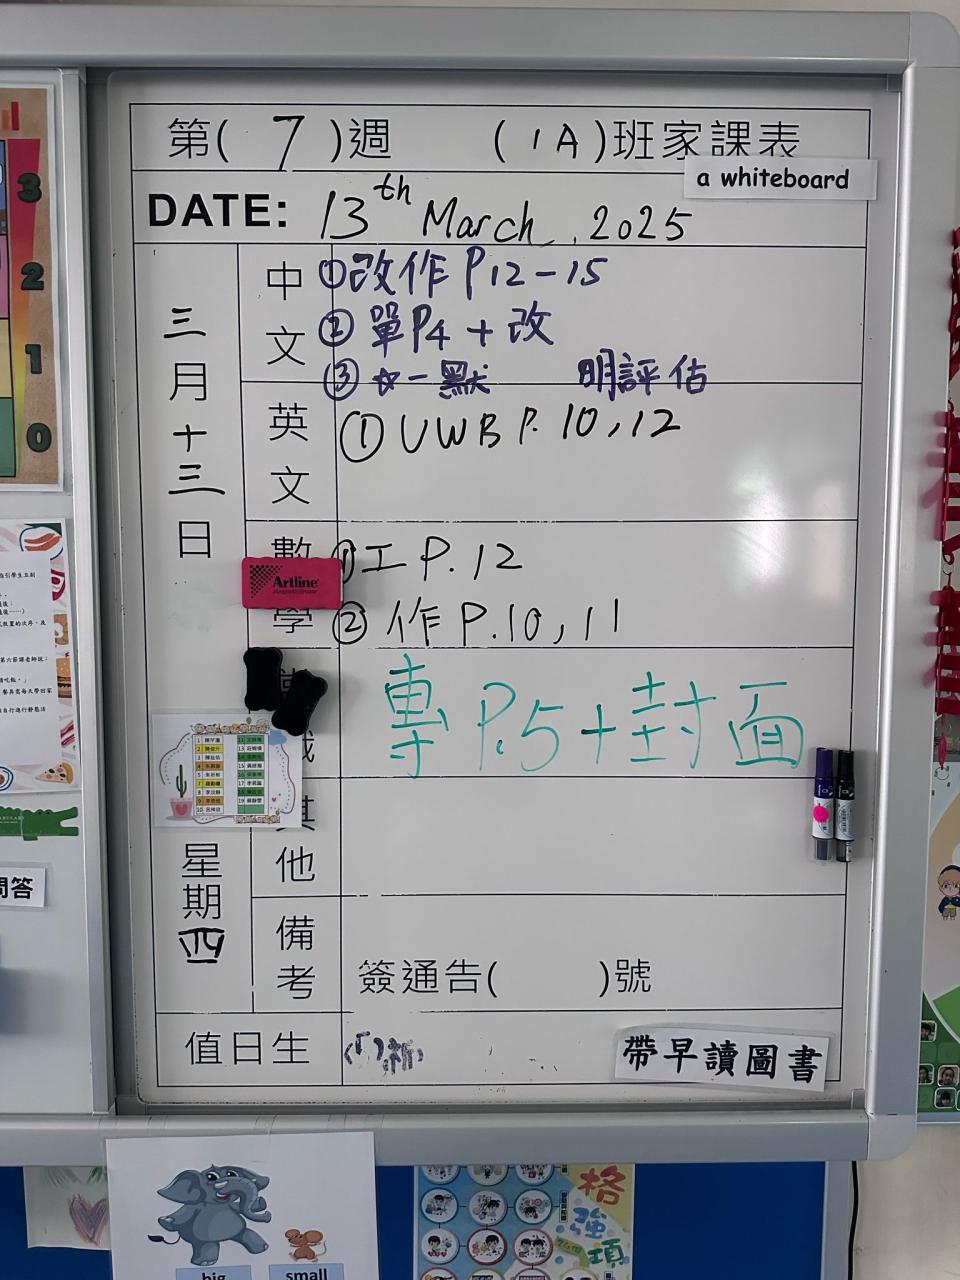 第( 7 )週 (1A)班家課表
a whiteboard
DATE: 13th March, 2025
三月十三日
星期四
中文
①改作P.12-15
②單P4+改
③ 一默 明評估
英文
①UWB P. 10,12
數學
①工 P.12
②作 P.10,11
Artline
專 P.5+封面
其他
備考
簽通告( )號
值日生
(5)祈
帶早讀圖書
3
2
1
0
問答
格
強
項
big
small